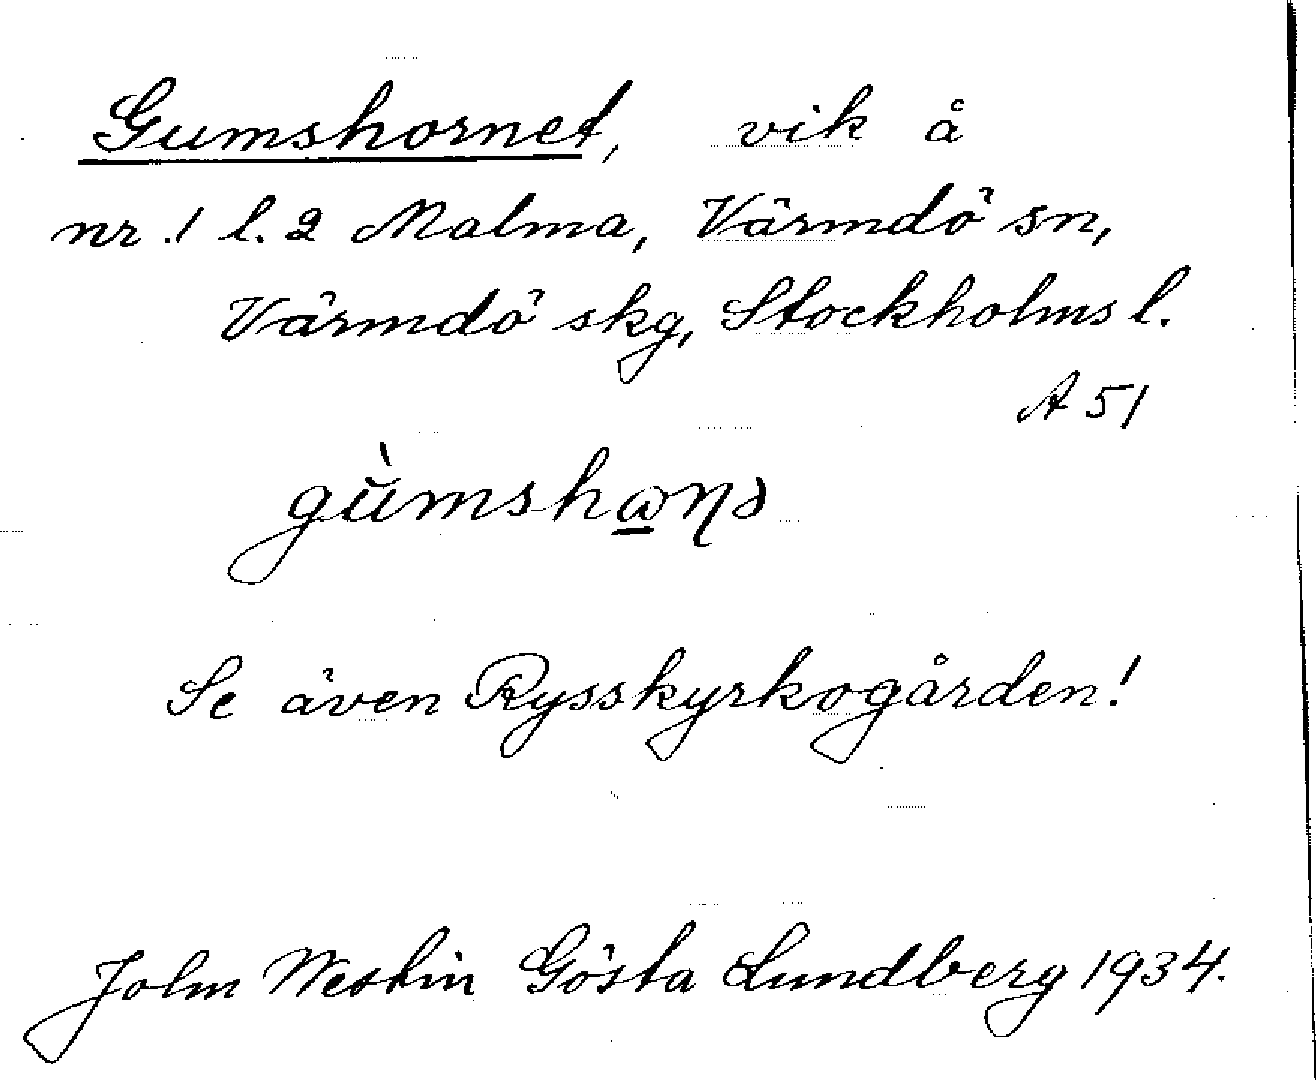 Gumshornet, vik å
nr. 1 l. 2 Malma, Värmdö sn,
Värmdö skg, Stockholms l.
A 51
gu̇̀mshω̱ηə
Se även Rysskyrkogården!
John Westin Gösta Lundberg 1934.